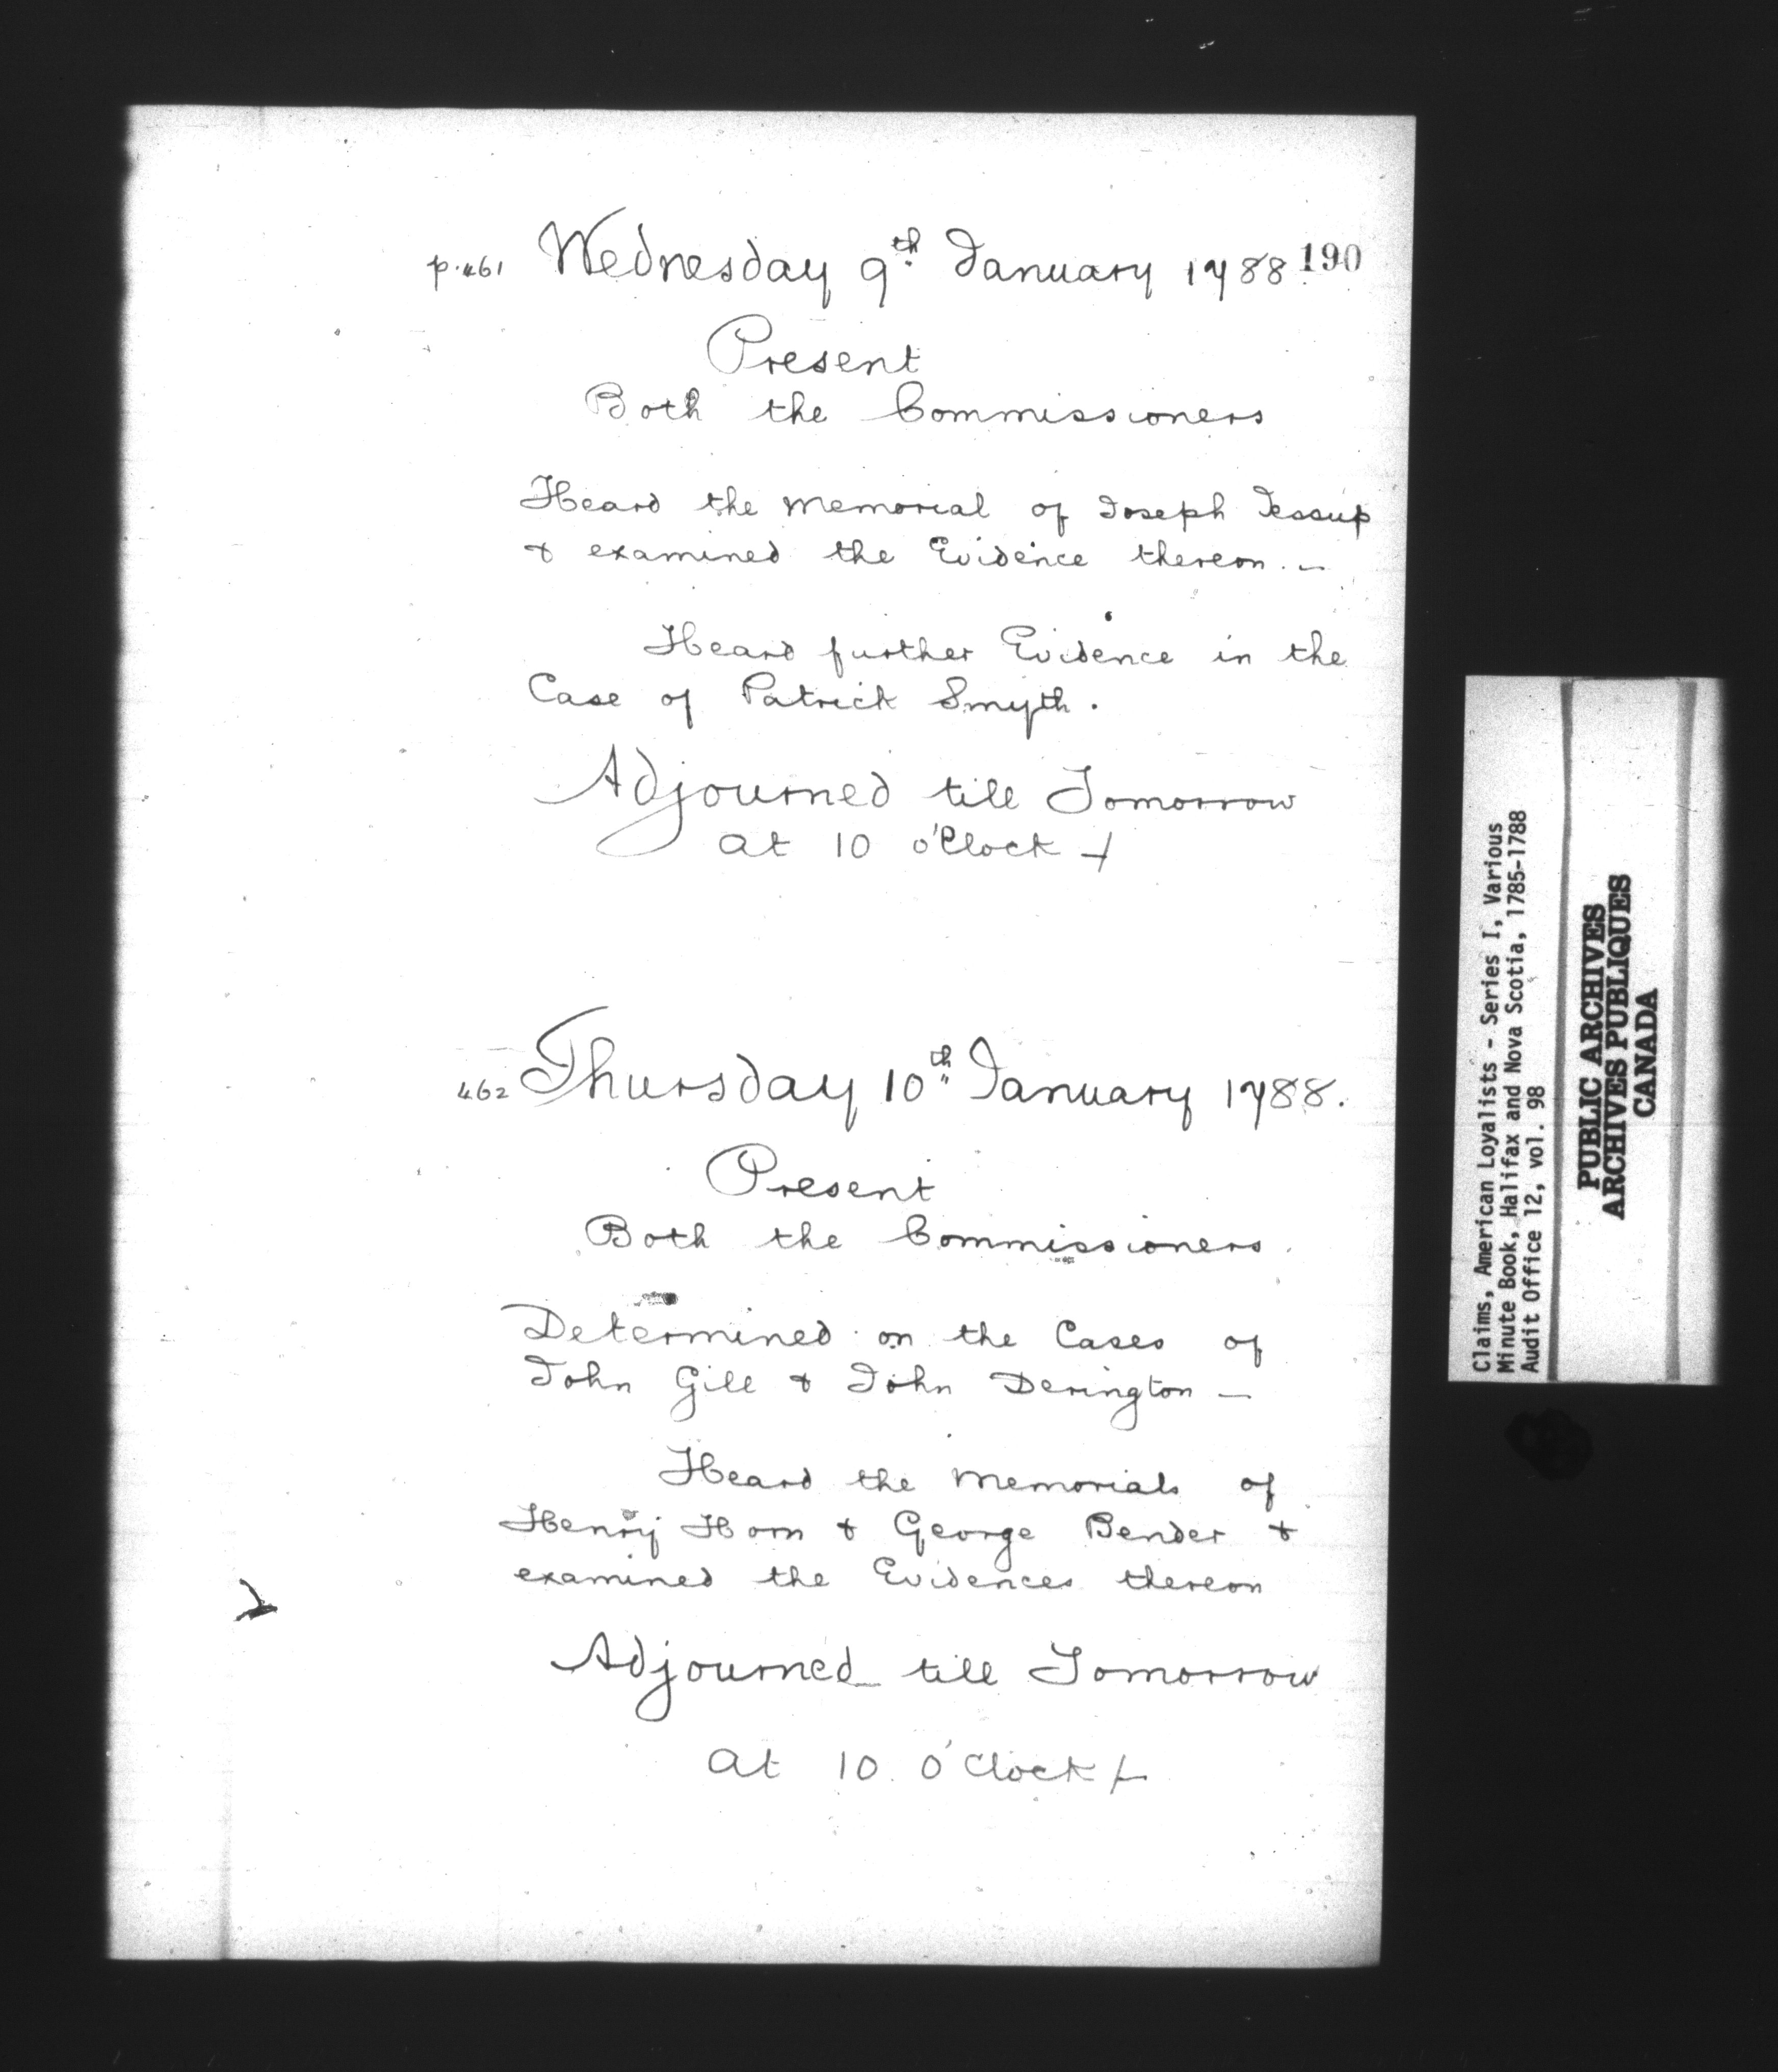 p.461 Wednesday 9th January 1788 190
Present
Both the Commissioners
Heard the Memorial of Joseph Jessup
& examined the Evidence thereon. -
Heard further Evidence in the
Case of Patrick Smyth.
Adjourned till Tomorrow
at 10 o'Clock
462 Thursday 10th January 1788.
Present
Both the Commissioners.
Determined on the Cases of
John Gill & John Derington -
Heard the Memorials of
Henry Horn & George Bender &
examined the Evidences thereon
Adjourned till Tomorrow
at 10 O'Clock
Claims, American Loyalists - Series I, Various
Minute Book, Halifax and Nova Scotia, 1785-1788
Audit Office 12, vol. 98
PUBLIC ARCHIVES
ARCHIVES PUBLIQUES
CANADA